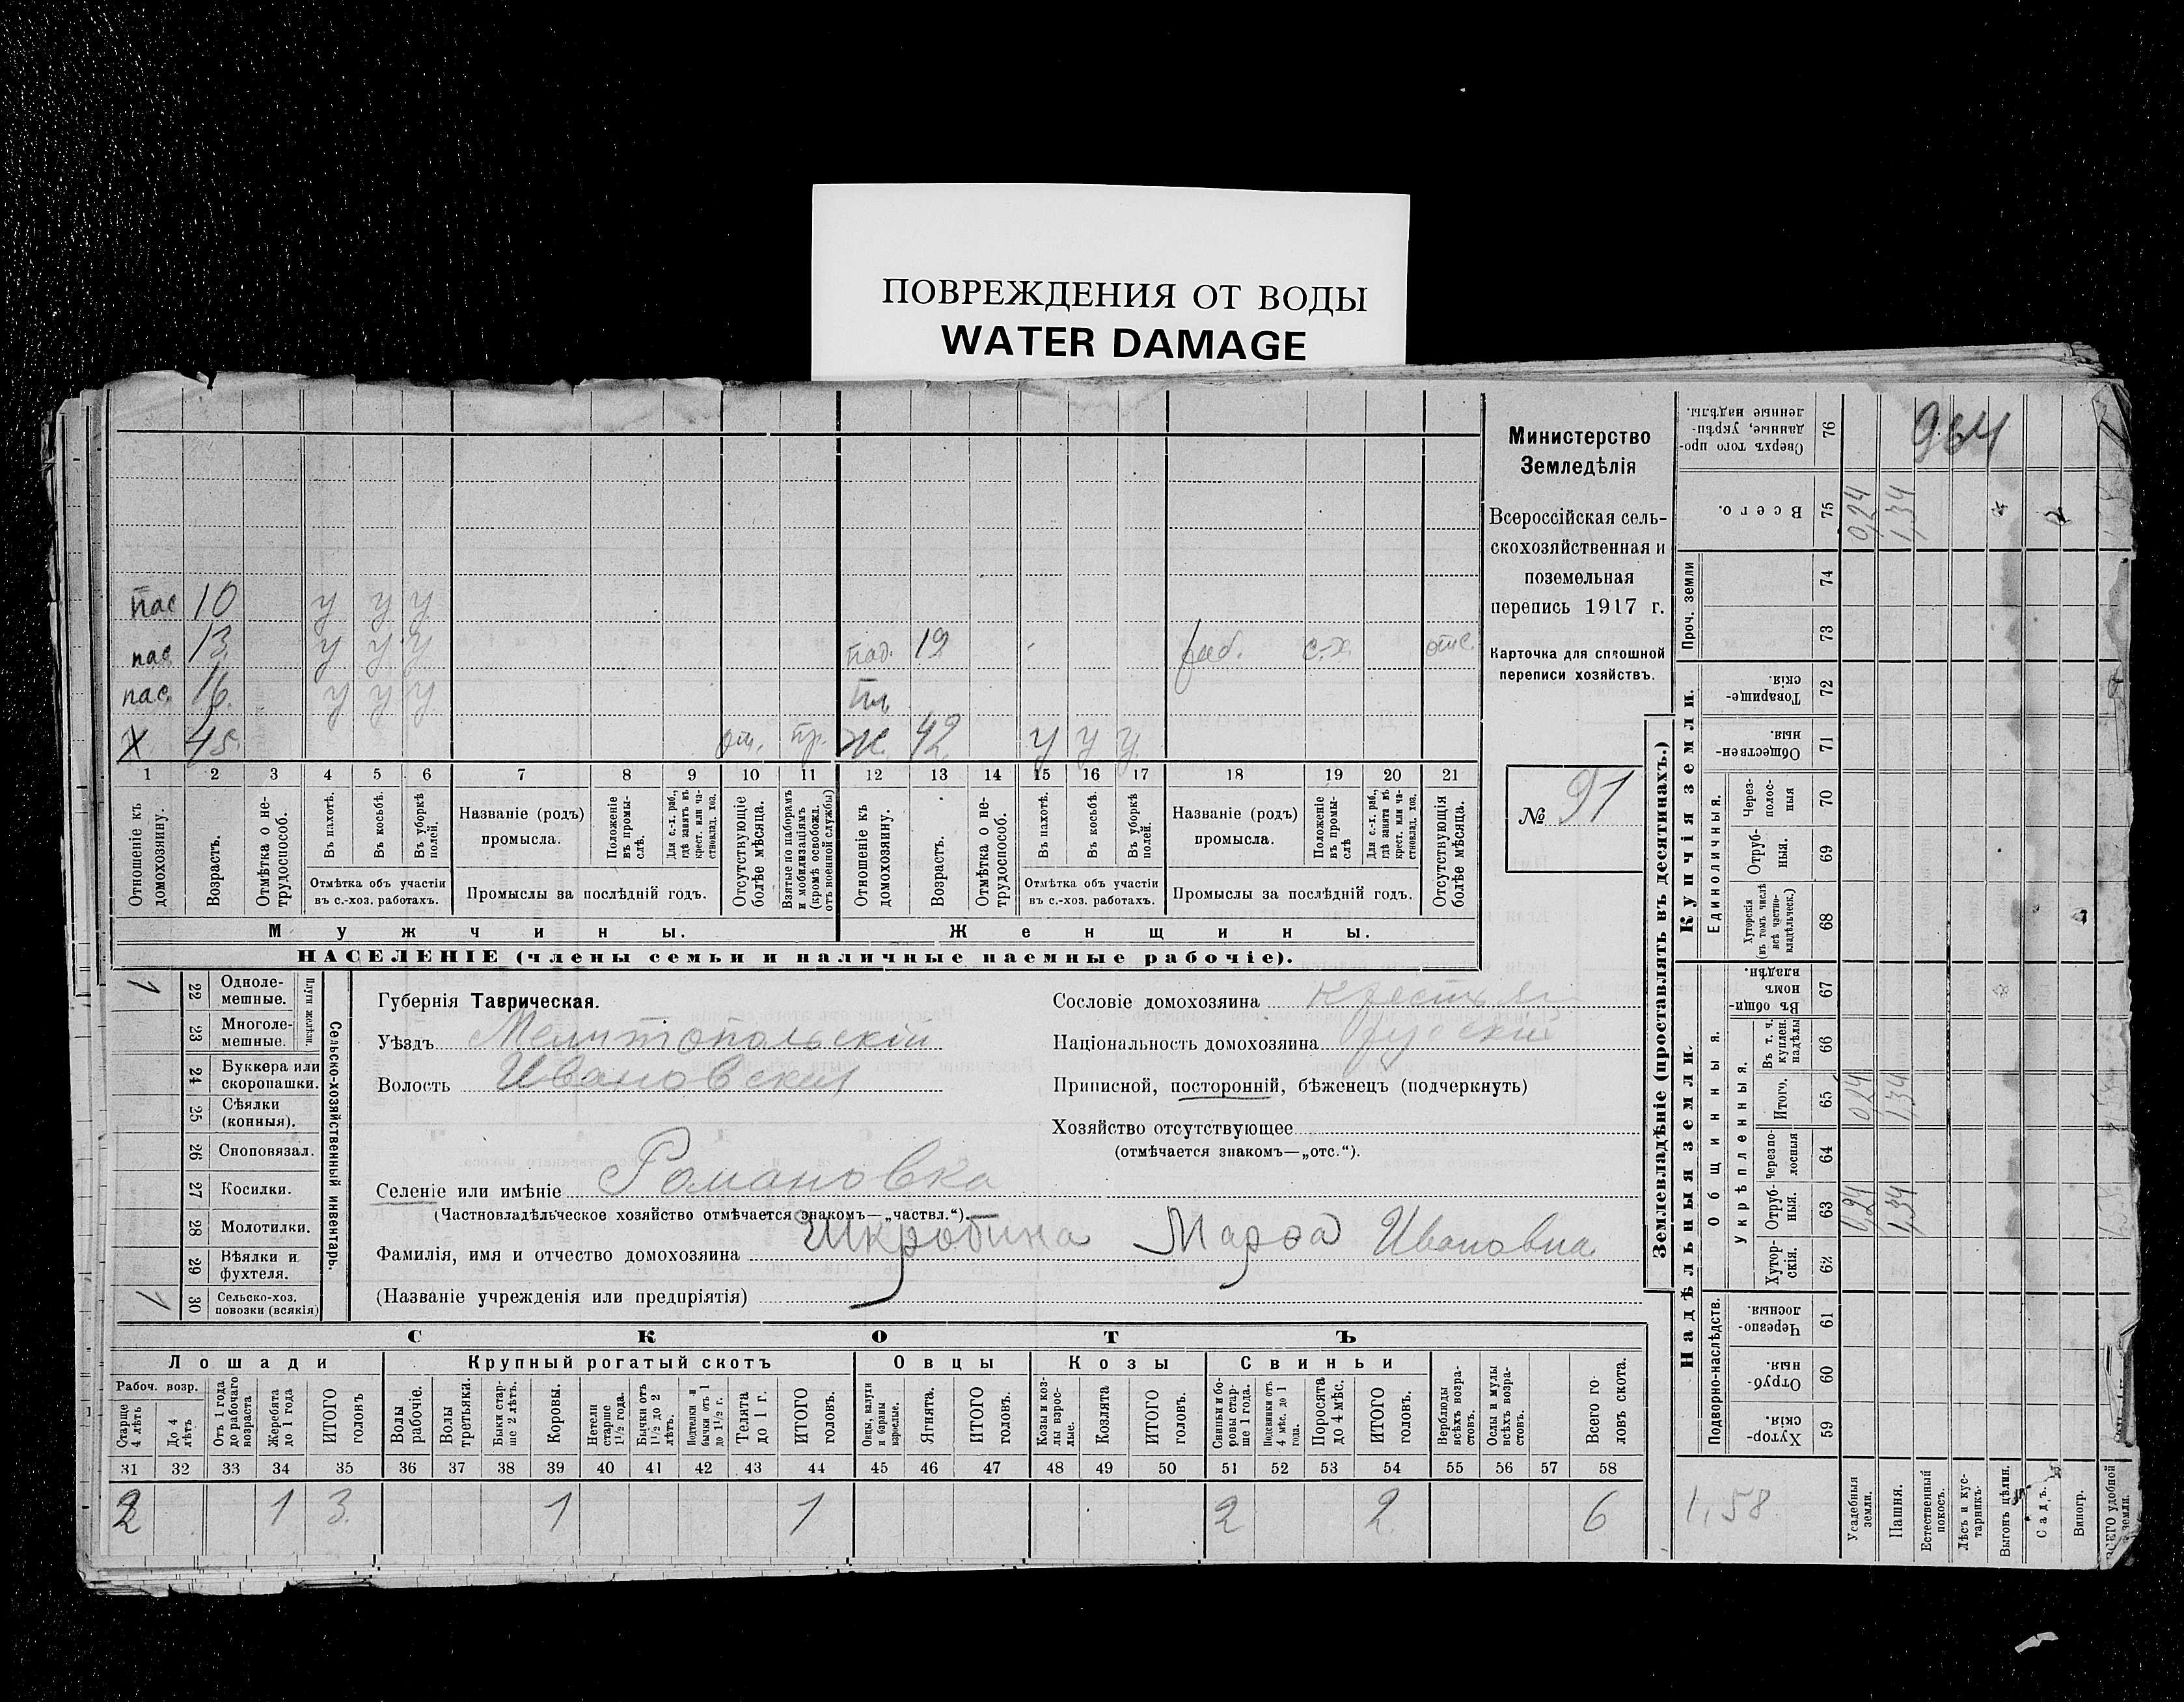 ПОВРЕЖДЕНИЯ ОТ ВОДЫ
WATER DAMAGE
пас 10 у у у
пас. 13 у у у пад. 19 раб. с.-х. отс.
пас. 16. у у у
X 45. от. пр. ж. 42 у у у
1 2 3 4 5 6 7 8 9 10 11 12 13 14 15 16 17 18 19 20 21
Отношеніе къ домохозяину.
Возрастъ.
Отмѣтка о нетрудоспособ.
Въ пахотѣ.
Въ косьбѣ.
Въ уборкѣ полей.
Отмѣтка объ участіи
въ с.-хоз. работахъ.
Названіе (родъ)
промысла.
Положеніе въ промыслѣ.
Для с.-х. раб., гдѣ занятъ въ крест. или частновлад. хоз.
Промыслы за послѣдній годъ.
Отсутствующіе болѣе мѣсяца.
Взятые по наборамъ и мобилизаціямъ (кромѣ освобожд. отъ военной службы)
Отношеніе къ домохозяину.
Возрастъ.
Отмѣтка о нетрудоспособ.
Въ пахотѣ.
Въ косьбѣ.
Въ уборкѣ полей.
Отмѣтка объ участіи
въ с.-хоз. работахъ.
Названіе (родъ)
промысла.
Положеніе въ промыслѣ
Для с.-х. раб., гдѣ занята въ крест. или частновлад. хоз.
Промыслы за послѣдній годъ.
Отсутствующія болѣе мѣсяца.
Мужчины. Женщины.
НАСЕЛЕНІЕ (члены семьи и наличные наемные рабочіе).
Министерство
Земледѣлія
Всероссійская сель-
скохозяйственная и
поземельная
перепись 1917 г.
Карточка для сплошной
переписи хозяйствъ.
№ 91
22 Одноле-
мешные.
23 Многоле-
мешные.
Плуги желѣзн.
24 Буккера или
скоропашки.
25 Сѣялки
(конныя).
26 Сноповязал.
27 Косилки.
28 Молотилки.
29 Вѣялки и
фухтеля.
30 Сельско-хоз.
повозки (всякія)
Сельско-хозяйственный инвентарь.
Губернія Таврическая.
Уѣздъ Мелитопольскій
Волость Ивановская
Селеніе или имѣніе Романовка
(Частновладѣльческое хозяйство отмѣчается знакомъ—„частвл.“).
Фамилія, имя и отчество домохозяина Шкробина Марѳа Ивановна
(Названіе учрежденія или предпріятія)
Сословіе домохозяина крестьян
Національность домохозяина русскій
Приписной, посторонній, бѣженецъ (подчеркнуть)
Хозяйство отсутствующее
(отмѣчается знакомъ—„отс.“).
СКОТЪ
Лошади Крупный рогатый скотъ Овцы Козы Свиньи
Рабоч. возр.
Старше 4 лѣтъ
До 4 лѣтъ
Отъ 1 года до рабочаго возраста
Жеребята до 1 года
ИТОГО головъ
Волы рабочіе.
Волы третьяки.
Быки старше 2 лѣтъ.
Коровы.
Нетели старше 1½ года.
Бычки отъ 1½ до 2 лѣтъ.
Подтелки и бычки отъ 1 до 1½ г.
Телята до 1 г.
ИТОГО головъ.
Овцы, валухи и бараны взрослые.
Ягнята.
ИТОГО головъ.
Козы и козлы взрослые.
Козлята
ИТОГО головъ.
Свиньи и боровы старше 1 года.
Подсвинки отъ 4 мѣс. до 1 года.
Поросята до 4 мѣс.
ИТОГО головъ.
Верблюды всѣхъ возрастовъ.
Ослы и мулы всѣхъ возрастовъ.
Всего головъ скота.
31 32 33 34 35 36 37 38 39 40 41 42 43 44 45 46 47 48 49 50 51 52 53 54 55 56 57 58
2 1 3 1 1 2 2 6
Землевладѣніе (проставлять въ десятинахъ.)
Купчія земли.
Надѣльныя земли.
Сверхъ того проданные, укрѣпленные надѣлы. 76 964
Всего. 75 0,24 1,34
Проч. земли
74
73
Товарищескія. 72
Общественныя. 71
Единоличныя.
Черезполосныя 70
Отрубныя. 69
Хуторскія (въ томъ числѣ всѣ частновладѣльческ.) 68
Общинныя.
Въ общинномъ владѣн. 67
Укрѣпленныя.
Въ т. ч. куплен. надѣлы 66
Итого. 65 0,24 1,34
Черезполосныя 64
Отрубныя. 63 0,24 1,34
Хуторскія. 62
Подворно-наслѣдств.
Черезполосныя 61
Отрубныя. 60
Хуторскія. 59
1,58
Усадебныя земли.
Пашня.
Естественный покосъ.
Лѣсъ и кустарникъ.
Выгонъ цѣлин.
Садъ.
Виногр.
ВСЕГО удобной земли.